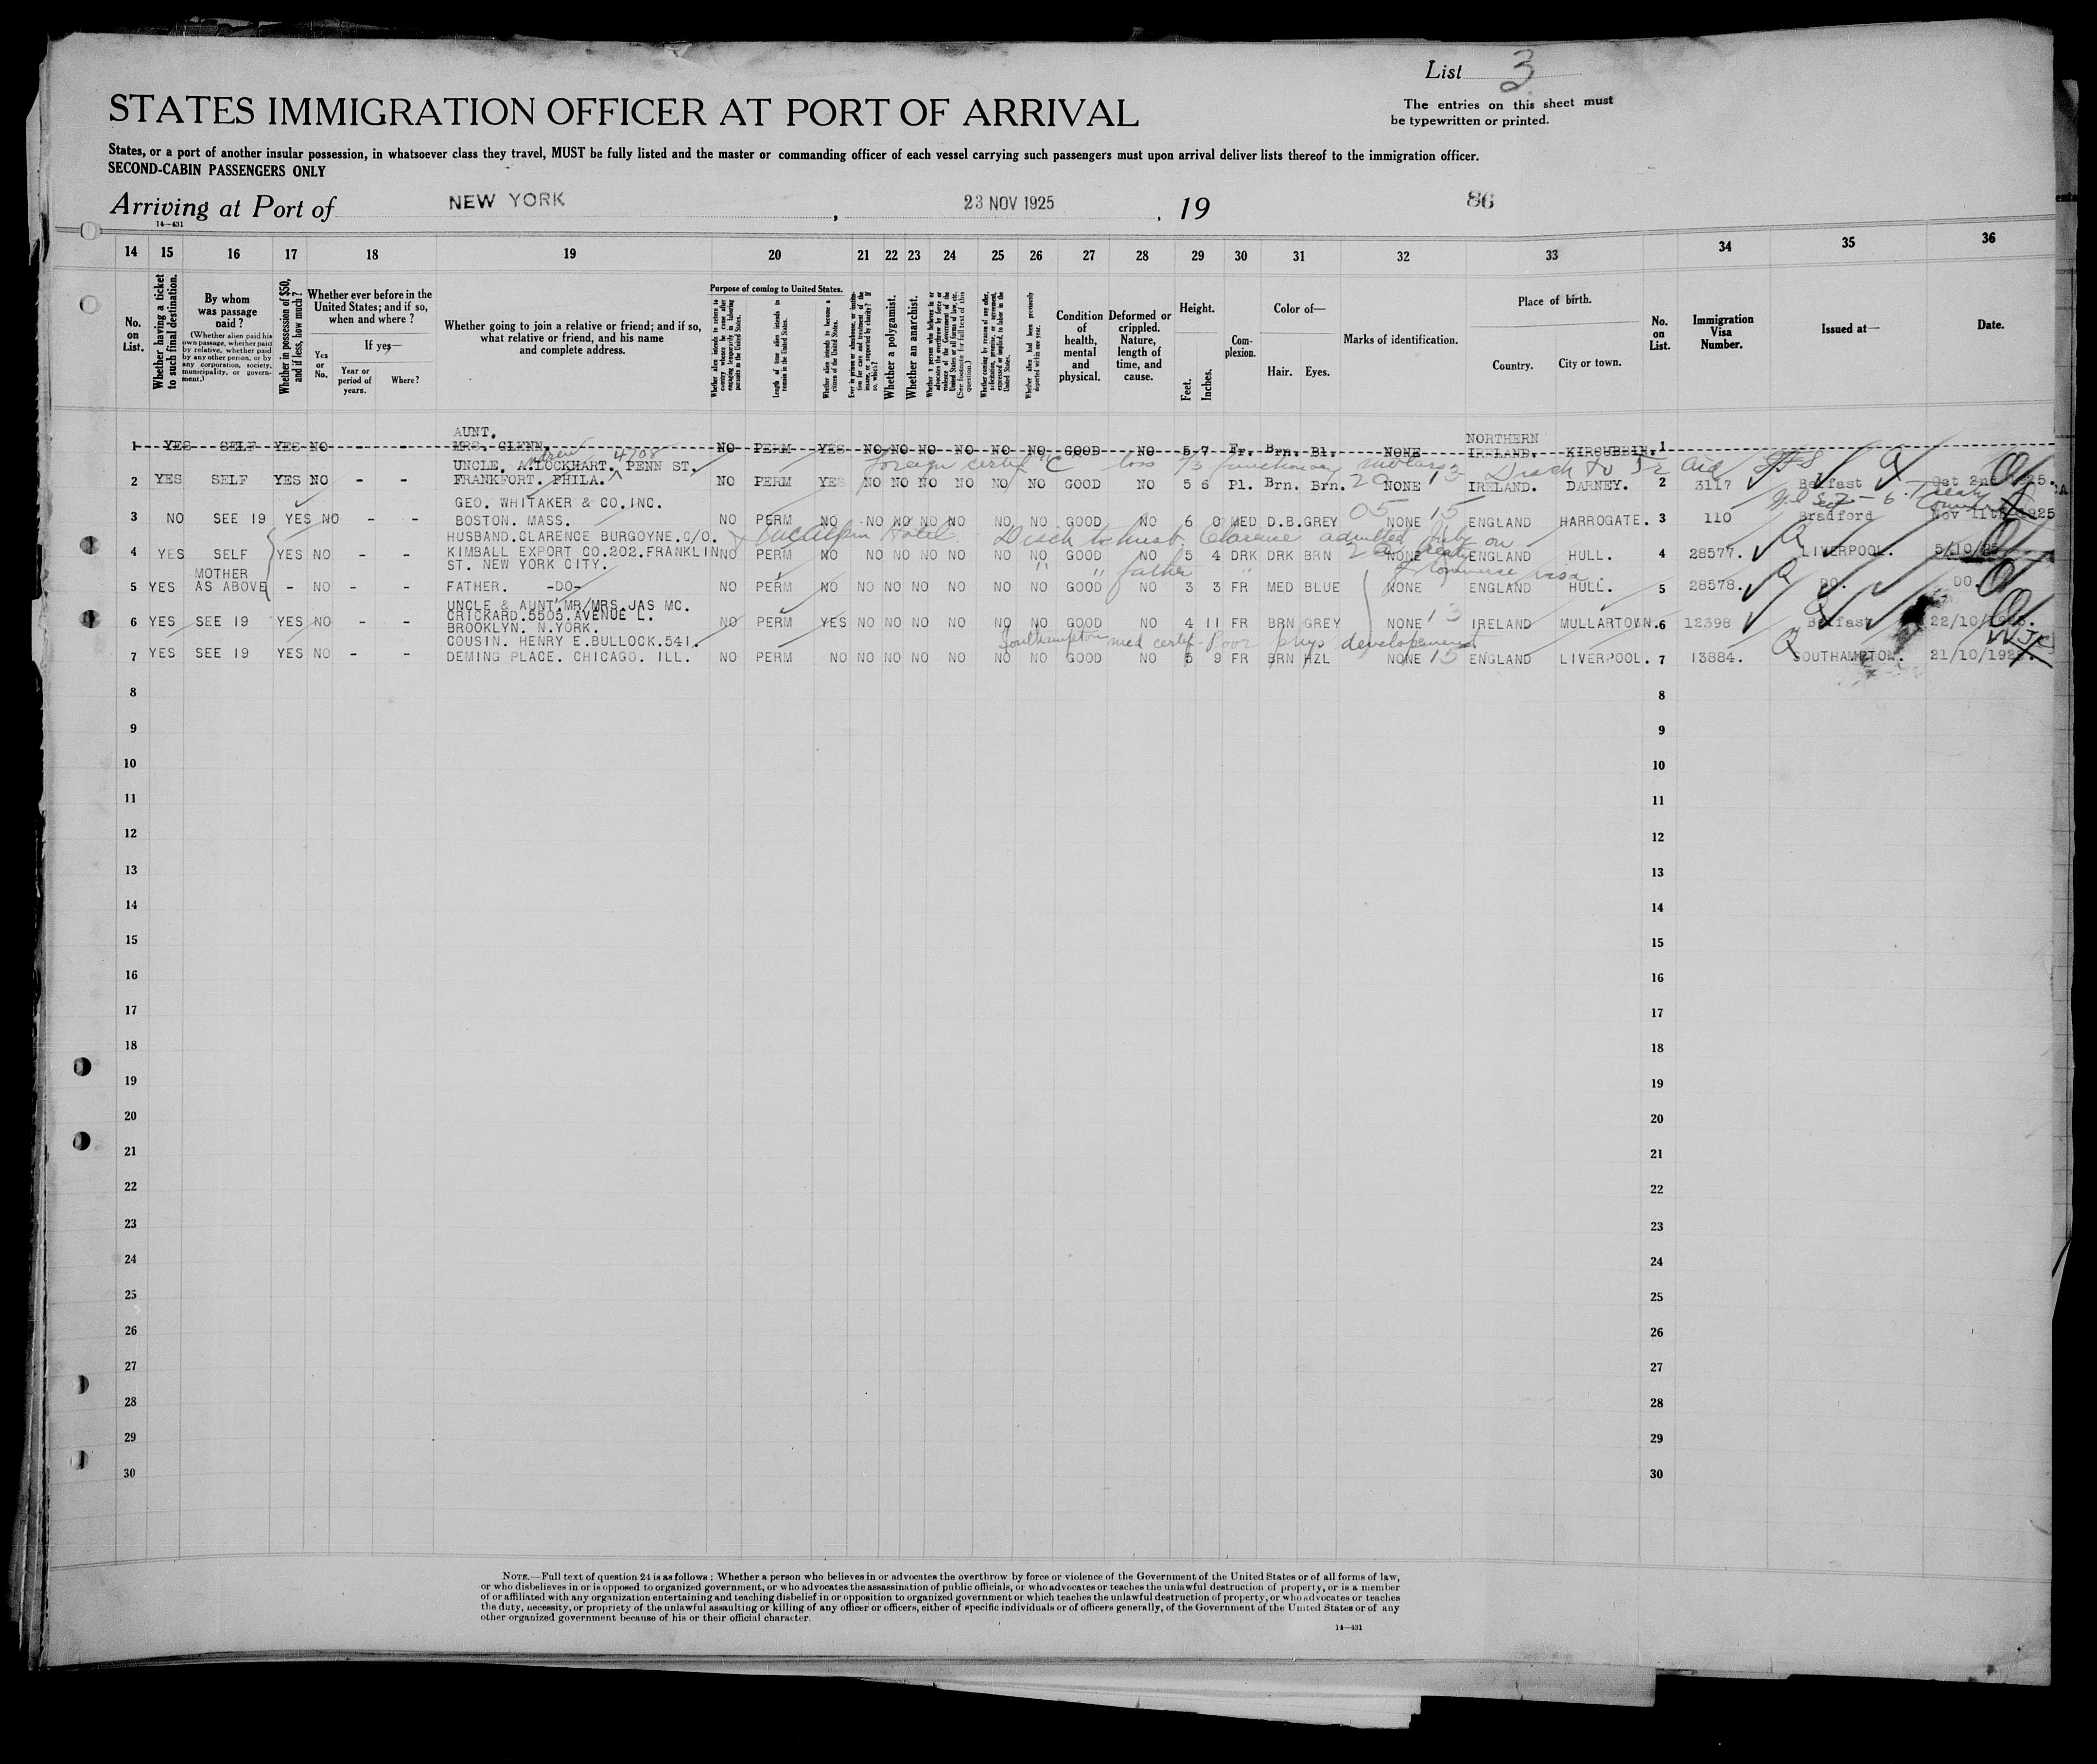 List 3
STATES IMMIGRATION OFFICER AT PORT OF ARRIVAL
The entries on this sheet must
be typewritten or printed.
States, or a port of another insular possession, in whatsoever class they travel, MUST be fully listed and the master or commanding officer of each vessel carrying such passengers must upon arrival deliver lists thereof to the immigration officer.
SECOND-CABIN PASSENGERS ONLY
Arriving at Port of NEW YORK, 23 NOV 1925, 19 86
14—431
14 15 16 17 18 19 20 21 22 23 24 25 26 27 28 29 30 31 32 33 34 35 36
No. on List.
Whether having a ticket to such final destination.
By whom was passage paid?
(Whether alien paid his own passage, whether paid by relative, whether paid by any other person, or by any corporation, society, municipality, or government.)
Whether in possession of $50, and if less, how much?
Whether ever before in the United States; and if so, when and where?
Yes or No.
If yes—
Year or period of years.
Where?
Whether going to join a relative or friend; and if so, what relative or friend, and his name and complete address.
Purpose of coming to United States.
Length of time alien intends to remain in the United States.
Whether alien intends to become a citizen of the United States.
Whether a polygamist.
Whether an anarchist.
Condition of health, mental and physical.
Deformed or crippled. Nature, length of time, and cause.
Height.
Feet. Inches.
Complexion.
Color of—
Hair. Eyes.
Marks of identification.
Place of birth.
Country. City or town.
No. on List.
Immigration Visa Number.
Issued at—
Date.
AUNT. NORTHERN
1 YES SELF YES NO - - MRS. GLENN. NO PERM YES NO NO NO NO NO NO GOOD NO 5 7 Fr. Brn. Bl. NONE IRELAND. KIRCUBBIN. 1
UNCLE. A. LOCKHART. 4708 PENN ST. foreign certif loss functioning molars Disch to
2 YES SELF YES NO - - FRANKFORT. PHILA. NO PERM YES NO NO NO NO NO NO GOOD NO 5 6 Pl. Brn. Brn. NONE IRELAND. DARNEY. 2 3117 Belfast Oct 2nd 1925.
GEO. WHITAKER & CO.INC.
3 NO SEE 19 YES NO - - BOSTON. MASS. NO PERM NO NO NO NO NO NO NO GOOD NO 6 0 MED D.B. GREY NONE ENGLAND HARROGATE. 3 110 Bradford Nov 11th 1925
HUSBAND.CLARENCE BURGOYNE.C/O. McAlpin Hotel Disch to husb. Clarence admitted on
4 YES SELF YES NO - - KIMBALL EXPORT CO.202.FRANKLIN NO PERM NO NO NO NO NO NO NO GOOD NO 5 4 DRK DRK BRN NONE ENGLAND HULL. 4 28577. LIVERPOOL. 5/10/25
ST. NEW YORK CITY. " " father " Commerce visa
MOTHER
5 YES AS ABOVE - NO - - FATHER. -DO- NO PERM NO NO NO NO NO NO NO GOOD NO 3 3 FR MED BLUE NONE ENGLAND HULL. 5 28578. DO. DO.
UNCLE & AUNT.MR/MRS.JAS MC.
CRICKARD.5505.AVENUE L.
6 YES SEE 19 YES NO - - BROOKLYN. N.YORK. NO PERM YES NO NO NO NO NO NO GOOD NO 4 11 FR BRN GREY NONE 13 IRELAND MULLARTOWN. 6 12398 Belfast 22/10/1925.
COUSIN. HENRY E.BULLOCK.541. Southampton med certif - Poor phys developement
7 YES SEE 19 YES NO - - DEMING PLACE. CHICAGO. ILL. NO PERM NO NO NO NO NO NO NO GOOD NO 5 9 FR BRN HZL NONE 15 ENGLAND LIVERPOOL. 7 13884. SOUTHAMPTON. 21/10/1925.
8 8
9 9
10 10
11 11
12 12
13 13
14 14
15 15
16 16
17 17
18 18
19 19
20 20
21 21
22 22
23 23
24 24
25 25
26 26
27 27
28 28
29 29
30 30
NOTE.—Full text of question 24 is as follows: Whether a person who believes in or advocates the overthrow by force or violence of the Government of the United States or of all forms of law,
or who disbelieves in or is opposed to organized government, or who advocates the assassination of public officials, or who advocates or teaches the unlawful destruction of property, or is a member
of or affiliated with any organization entertaining and teaching disbelief in or opposition to organized government or which teaches the unlawful destruction of property, or who advocates or teaches
the duty, necessity, or propriety of the unlawful assaulting or killing of any officer or officers, either of specific individuals or of officers generally, of the Government of the United States or of any
other organized government because of his or their official character.
14—431